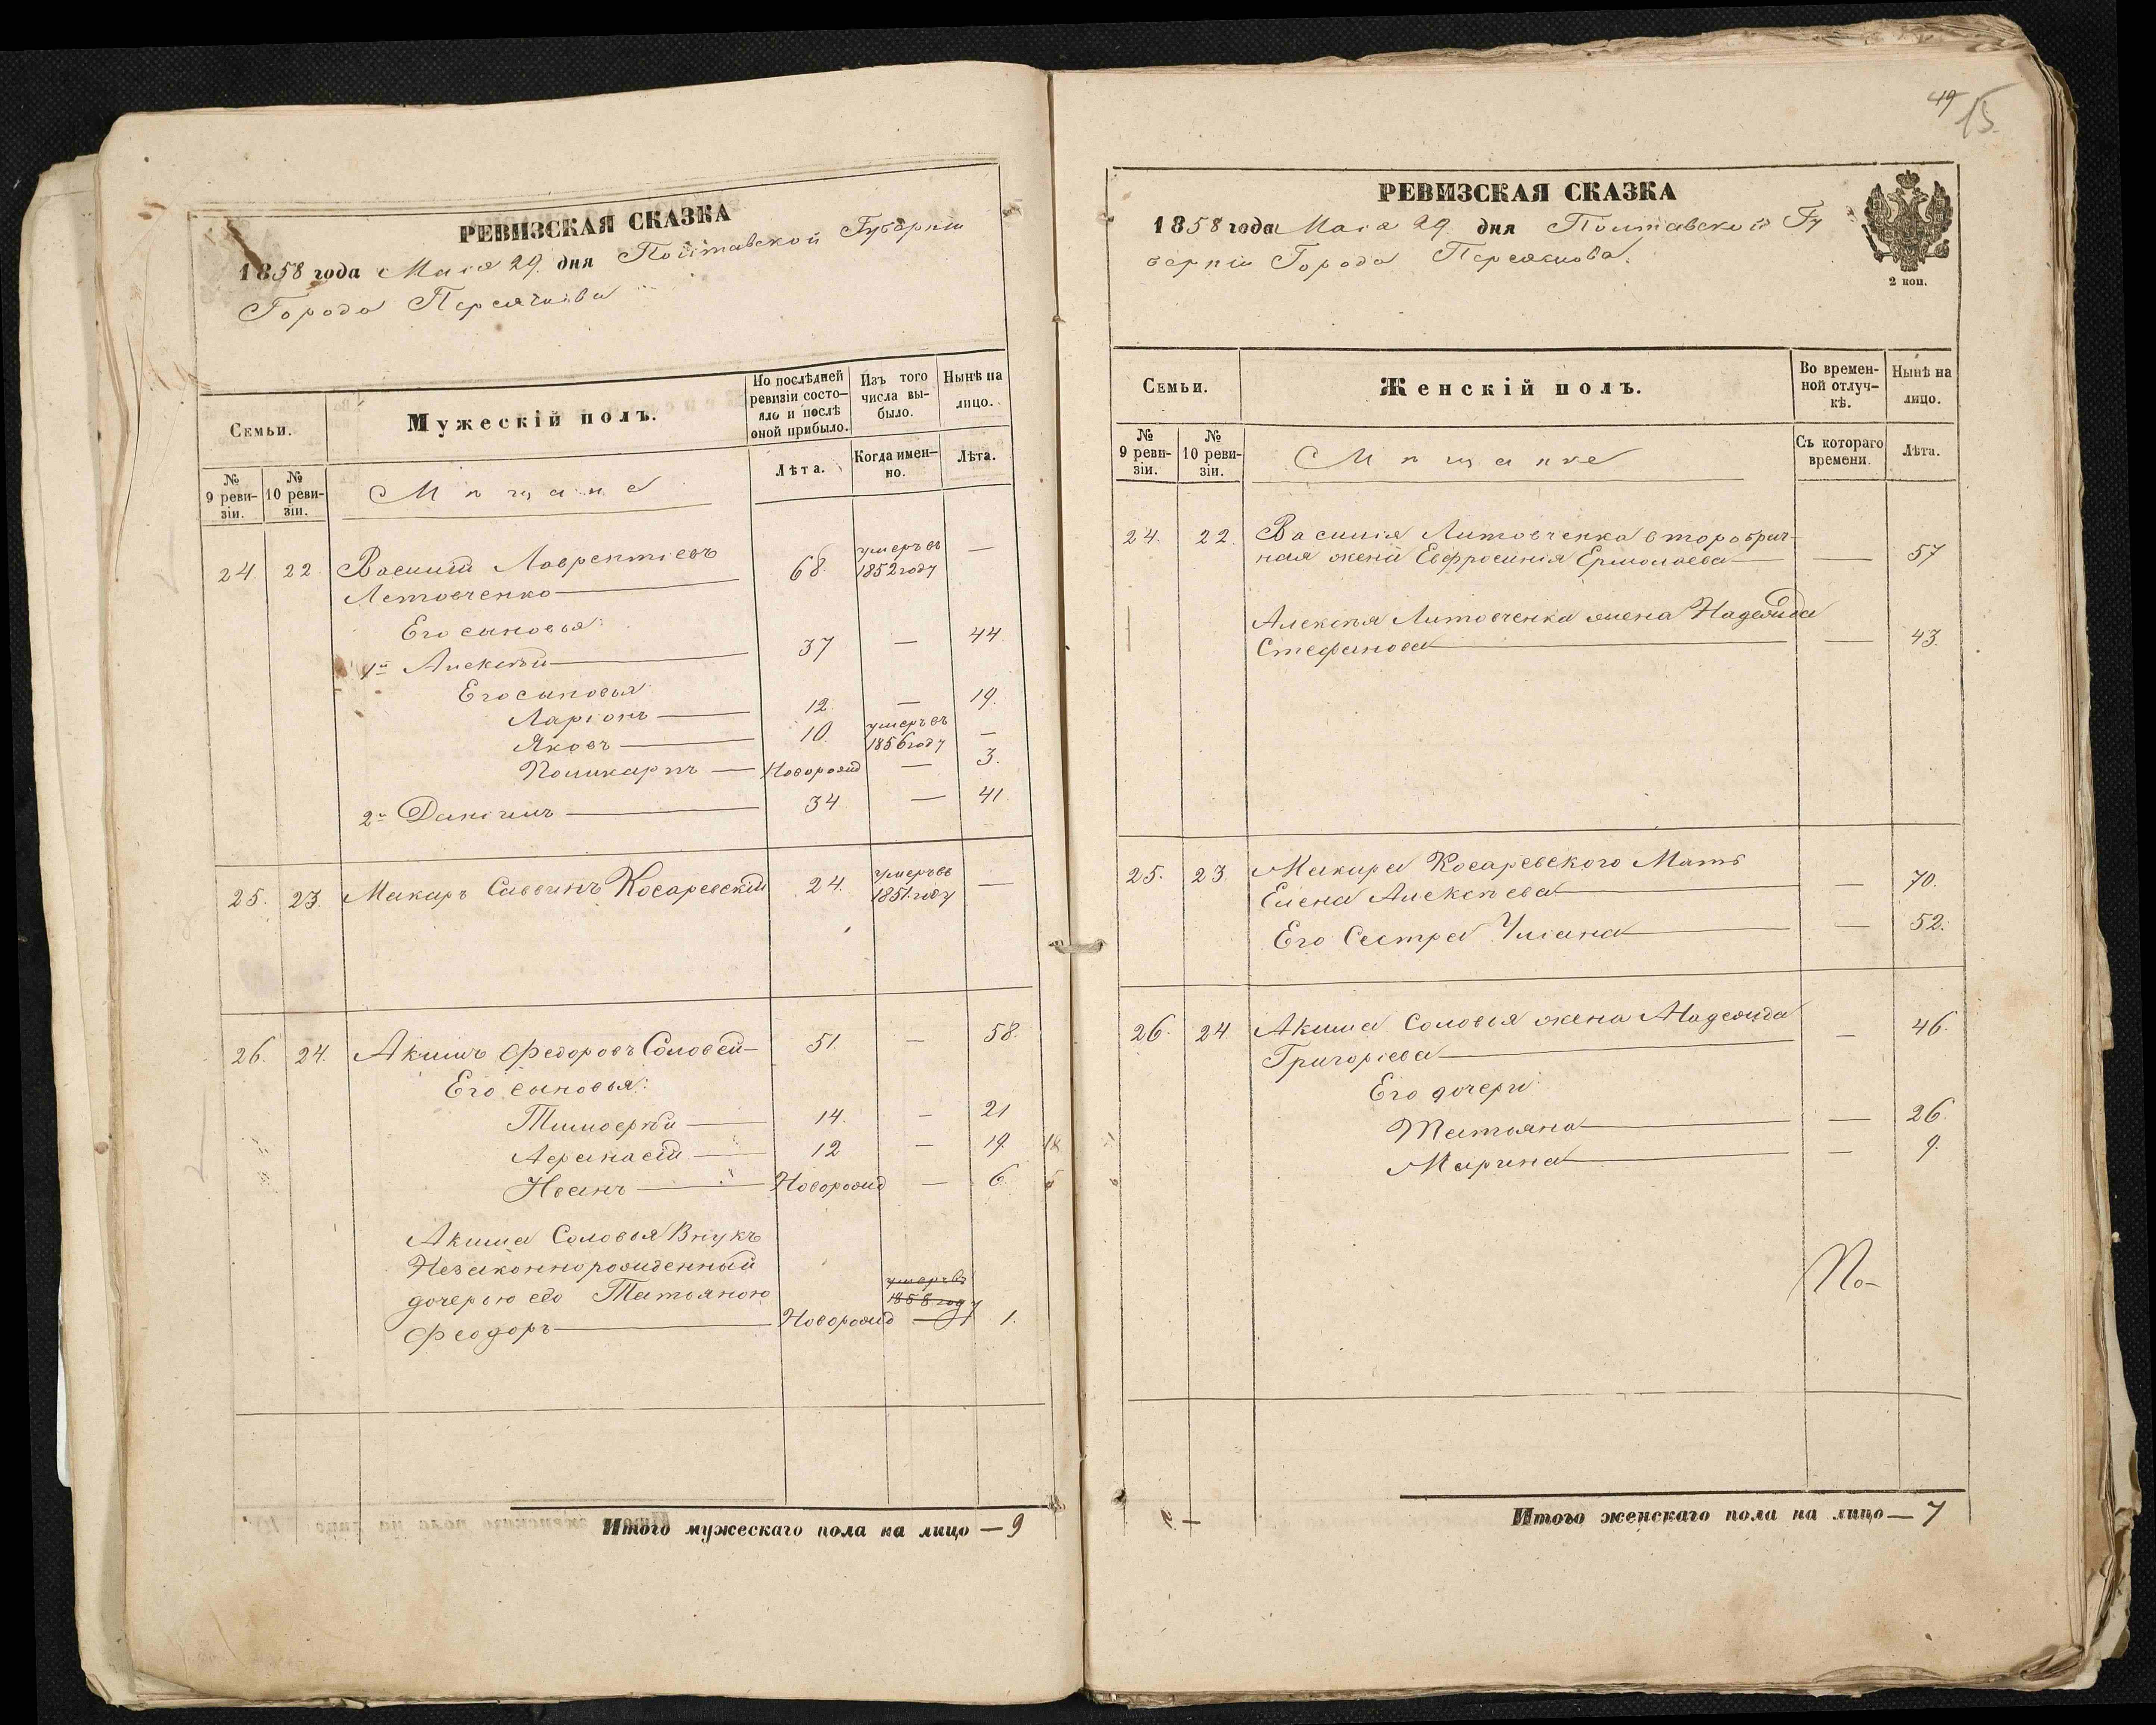 РЕВИЗСКАЯ СКАЗКА
1858 года Маія 29. дня Полтавской Губерніи
Города Переяслова
Семьи.
Мужескій полъ.
По послѣдней ревизіи состояло и послѣ оной прибыло.
Изъ того числа выбыло.
Нынѣ на лицо.
№ 9 ревизіи.
№ 10 ревизіи.
Мѣщане
Лѣта.
Когда именно.
Лѣта.
24. 22 Василій Лаврентіевъ 68. умеръ въ 1852 году —
Литовченко
Его сыновья:
1й Алексѣй 37 — 44
Его сыновья
Ларіонъ 12. — 19.
Яковъ 10. умеръ въ 1856 году —
Поликарпъ Новорожд — 3.
2й Даніилъ 34 — 41
25. 23. Макаръ Саввинъ Косаревскій 24. умеръ въ 1851 году —
26. 24. Акимъ Федоровъ Соловей 51. — 58.
Его сыновья:
Тимофѣй 14. — 21
Афанасій 12 — 19. 18
Иванъ Новорожд — 6. 5
Акима Соловья Внукъ
Незаконнорожденный
дочерью его Татьяною умеръ въ 1858 году
Феодоръ Новорожд — 1.
Итого мужескаго пола на лицо — 9
49 15.
РЕВИЗСКАЯ СКАЗКА
1858 года Маія 29. дня Полтавской Гу
берніи Города Переяслова.
2 коп.
Семьи.
Женскій полъ.
Во временной отлучкѣ.
Нынѣ на лицо.
№ 9 ревизіи.
№ 10 ревизіи.
Мѣщанке
Съ котораго времени.
Лѣта.
24. 22. Василія Литовченка второбрач-
ная жена Евфросинія Ермолаева — 57
Алексѣя Литовченка жена Надежда
Стефанова — 43.
25. 23. Макара Косаревского Мать
Елена Алексѣева — 70.
Его Сестра Уліана — 52.
26. 24. Акима Соловья жена Надежда — 46.
Григоріева
Его дочери:
Татьяна — 26.
Марина — 9.
По-
Итого женскаго пола на лицо — 7